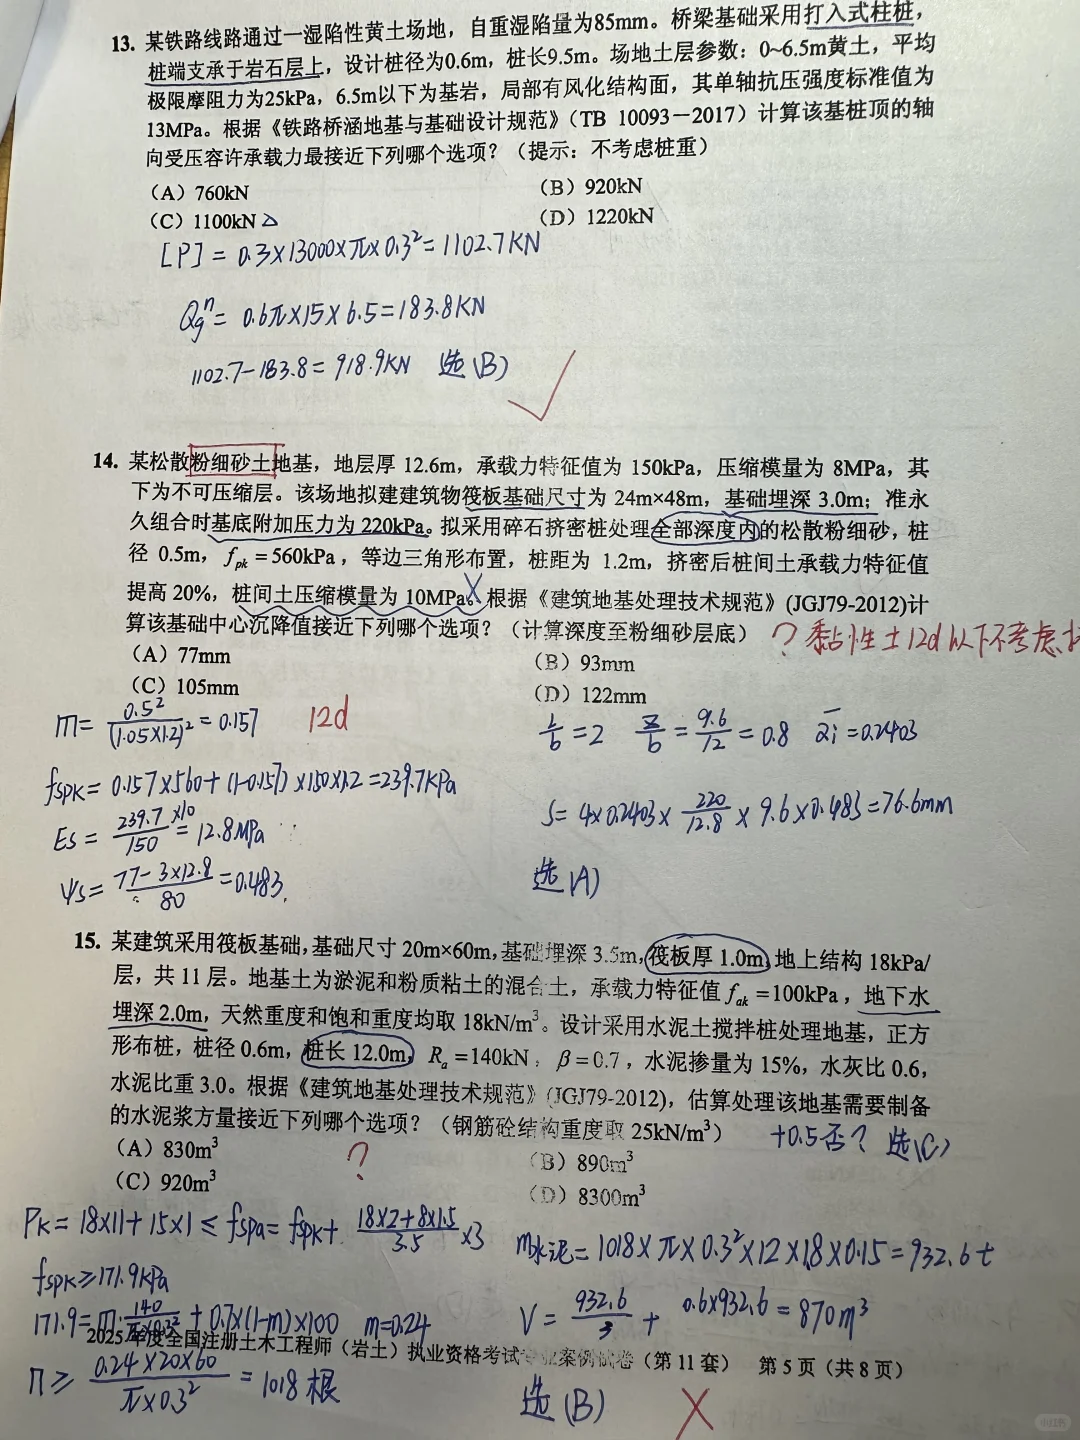 13. 某铁路线路通过一湿陷性黄土场地，自重湿陷量为85mm。桥梁基础采用打入式柱桩，
桩端支承于岩石层上，设计桩径为0.6m，桩长9.5m。场地土层参数：0~6.5m黄土，平均
极限摩阻力为25kPa，6.5m以下为基岩，局部有风化结构面，其单轴抗压强度标准值为
13MPa。根据《铁路桥涵地基与基础设计规范》（TB 10093－2017）计算该基桩顶的轴
向受压容许承载力最接近下列哪个选项？（提示：不考虑桩重）
（A）760kN （B）920kN
（C）1100kN △ （D）1220kN
[P] = 0.3×13000×π×0.3² = 1102.7KN
Qgⁿ = 0.6π×15×6.5=183.8KN
1102.7-183.8=918.9KN 选(B)
14. 某松散粉细砂土地基，地层厚 12.6m，承载力特征值为 150kPa，压缩模量为 8MPa，其
下为不可压缩层。该场地拟建建筑物筏板基础尺寸为 24m×48m，基础埋深 3.0m；准永
久组合时基底附加压力为 220kPa。拟采用碎石挤密桩处理全部深度内的松散粉细砂，桩
径 0.5m，fpk =560kPa，等边三角形布置，桩距为 1.2m，挤密后桩间土承载力特征值
提高 20%，桩间土压缩模量为 10MPa。根据《建筑地基处理技术规范》(JGJ79-2012)计
算该基础中心沉降值接近下列哪个选项？（计算深度至粉细砂层底） ？黏性土12d以下不考虑
（A）77mm （B）93mm
（C）105mm （D）122mm
m= 0.5²/(1.05×1.2)² =0.157 12d
l/b=2 z/b=9.6/12=0.8 ᾱi=0.2403
fspk= 0.157×560+(1-0.157)×150×1.2=239.7kPa
S=4×0.2403×220/12.8×9.6×0.483=76.6mm
Es= 239.7×10/150=12.8MPa
选(A)
ψs= 77-3×12.8/80=0.483
15. 某建筑采用筏板基础，基础尺寸 20m×60m，基础埋深 3.5m，筏板厚 1.0m，地上结构 18kPa/
层，共 11 层。地基土为淤泥和粉质粘土的混合土，承载力特征值 fak =100kPa，地下水
埋深 2.0m，天然重度和饱和重度均取 18kN/m³。设计采用水泥土搅拌桩处理地基，正方
形布桩，桩径 0.6m，桩长 12.0m，Ra =140kN，β=0.7，水泥掺量为 15%，水灰比 0.6，
水泥比重 3.0。根据《建筑地基处理技术规范》(JGJ79-2012)，估算处理该地基需要制备
的水泥浆方量接近下列哪个选项？（钢筋砼结构重度取 25kN/m³） +0.5否？选(C)
（A）830m³ ？ （B）890m³
（C）920m³ （D）8300m³
Pk= 18×11+15×1 ≤ fspa=fspk+ 18×2+8×1.5/3.5 ×3
m水泥=1018×π×0.3²×12×1.8×0.15=932.6t
fspk≥171.9kPa
171.9=m·140/π×0.3²+0.7×(1-m)×100 m=0.24
V= 932.6/3 + 0.6×932.6=870m³
2025年度全国注册土木工程师（岩土）执业资格考试专业案例试卷（第 11 套） 第 5 页（共 8 页）
n≥ 0.24×20×60/π×0.3² =1018根
选(B)